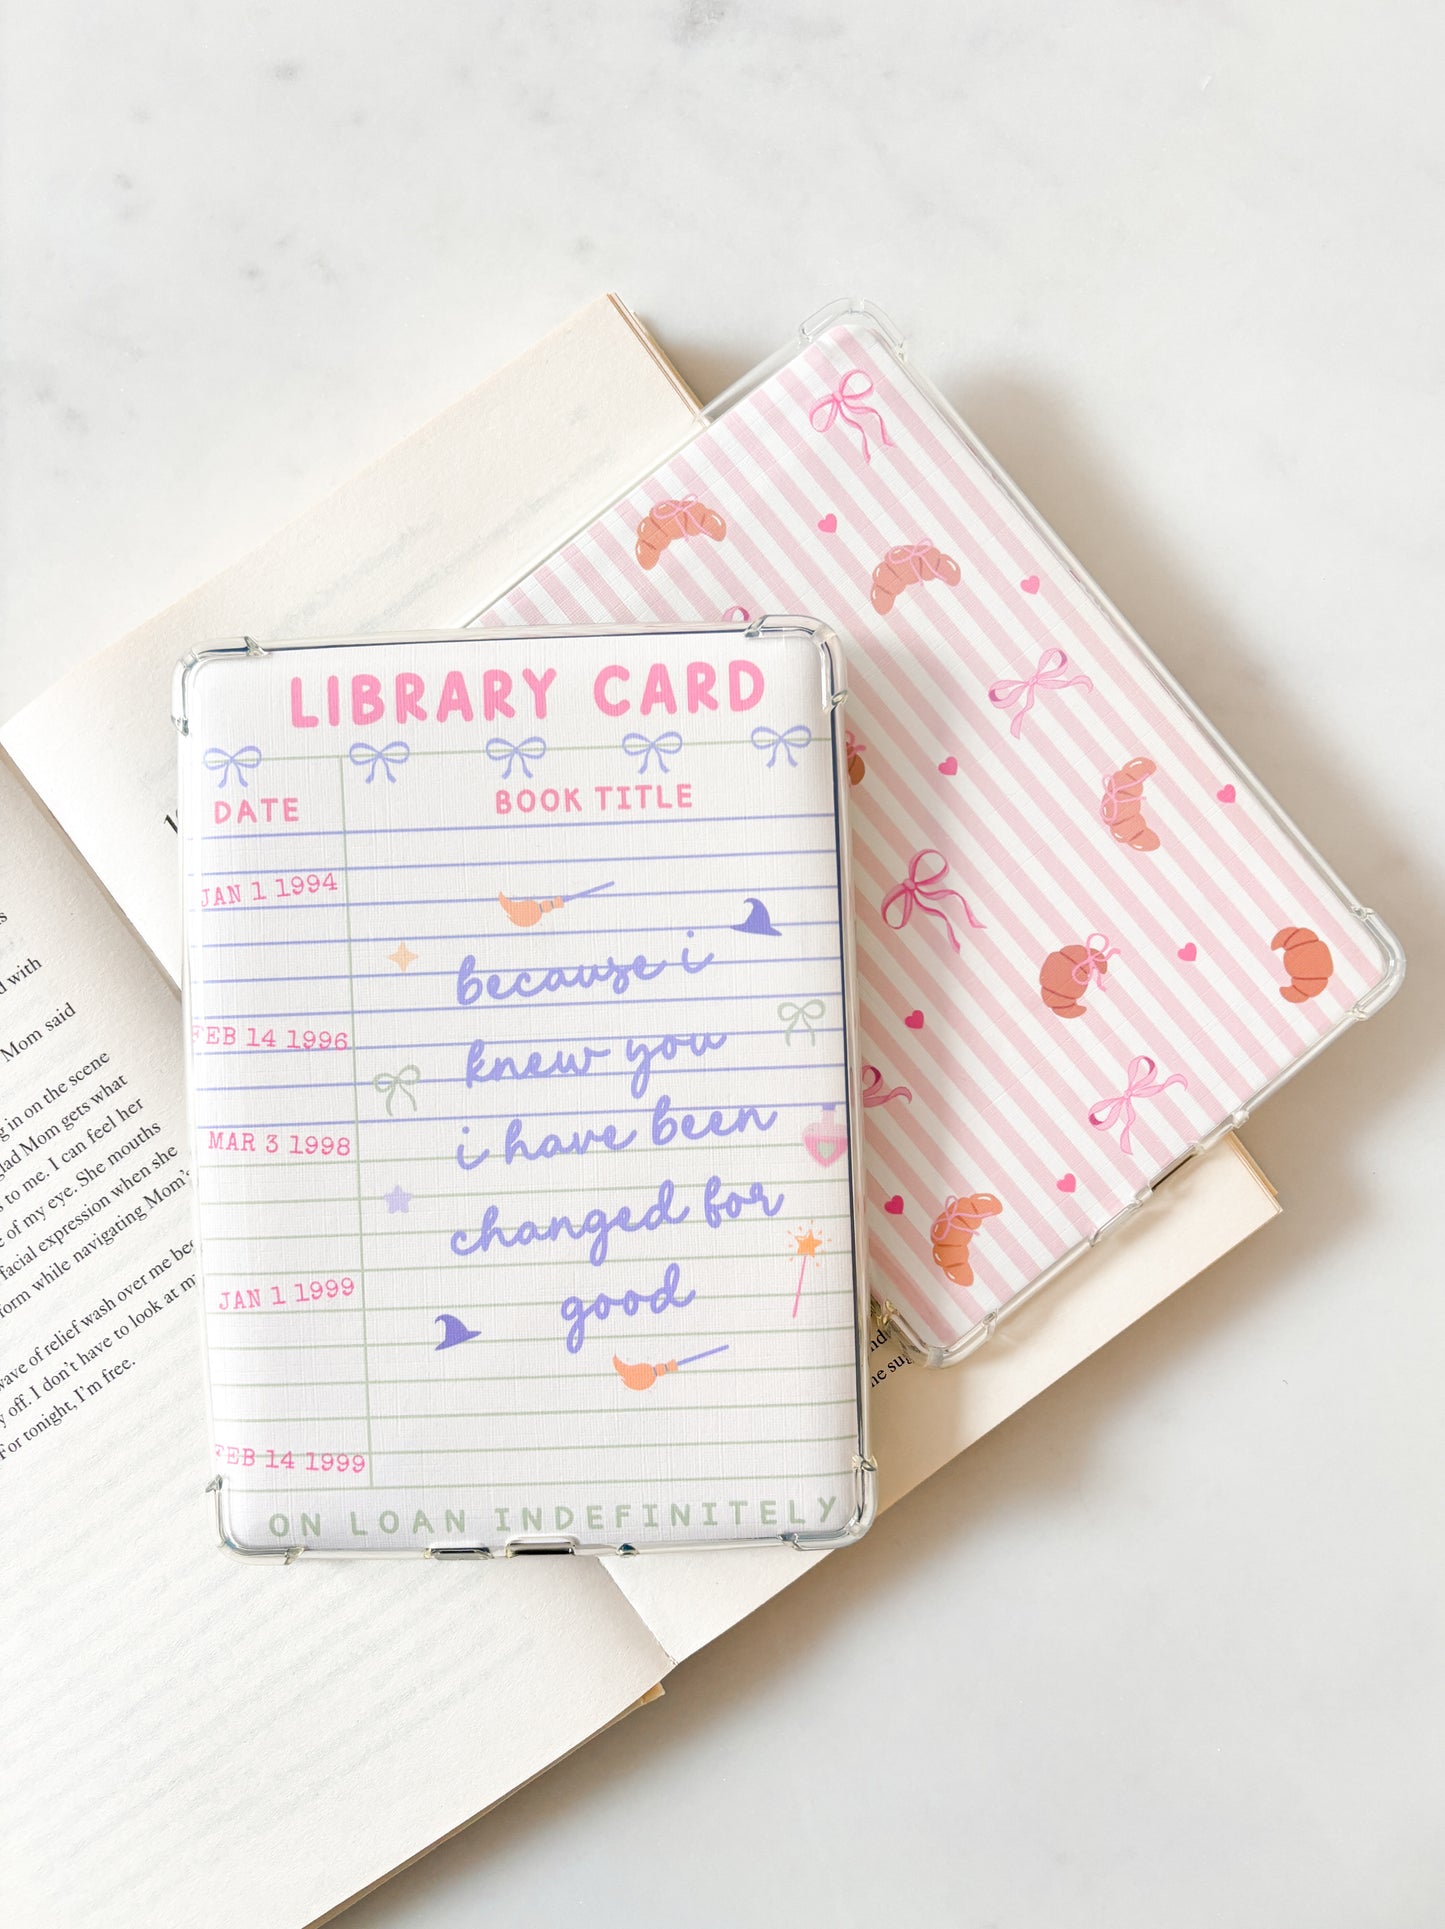 LIBRARY CARD
DATE
BOOK TITLE
JAN 1 1994
FEB 14 1996
MAR 3 1998
JAN 1 1999
FEB 14 1999
because i
knew you
i have been
changed for
good
ON LOAN INDEFINITELY
d with
Mom said
g in on the scene
glad Mom gets what
s to me. I can feel her
e of my eye. She mouths
facial expression when she
form while navigating Mom's
wave of relief wash over me
y off. I don't have to look at
For tonight, I'm free.